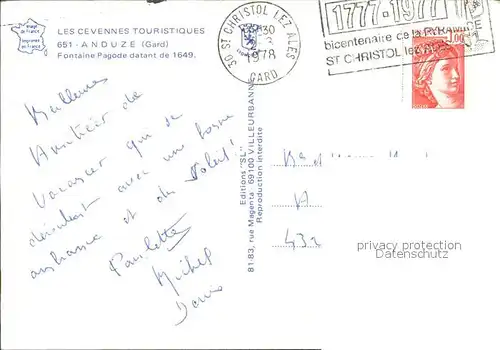 LES CEVENNES TOURISTIQUES
651 - ANDUZE (Gard)
Fontaine Pagode datant de 1649.
France
Imprimé en France
30 ST CHRISTOL LEZ ALES
30
1978
GARD
1777-1977
bicentenaire de la PYRAM
ST CHRISTOL lez
1,00
Editions "SL"
81-83, rue Magenta - 69100 VILLEURBANNE
Reproduction interdite
Meilleures
Amitiés de
vacances qui se
déroulent avec une bonne
ambiance et du Soleil!
Paulette
Michel
432
privacy protection
Datenschutz